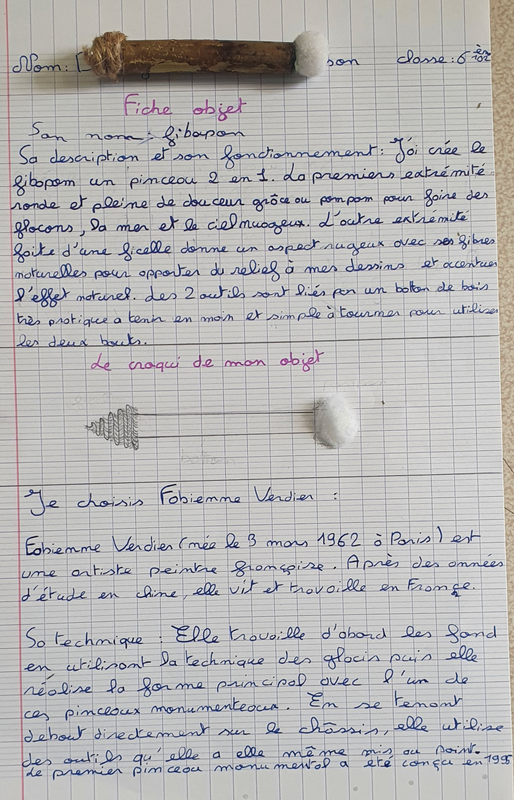 Nom: son classe: 6ème
Fiche objet
Son nom: fibopom
Sa description et son fonctionnement: J'ai crée le
fibopom un pinceau 2 en 1. La premiers extrémité
ronde et pleine de douceur grâce au pompom pour faire des
flocons, la mer et le ciel nuageux. L'autre extrémité
faite d'une ficelle donne un aspect rugeux avec ses fibres
naturelles pour apporter du relief à mes dessins et accentuer
l'effet naturel. Les 2 outils sont liés par un baton de bois
très pratique a tenir en main et simple à tourner pour utiliser
les deux bouts.
Le croqui de mon objet
Je choisis Fabienne Verdier :
Fabienne Verdier (née le 3 mars 1962 à Paris) est
une artiste peintre française. Après des années
d'étude en chine, elle vit et travaille en France.
Sa technique : Elle travaille d'abord les fond
en utilisant la technique des glacis puis elle
réalise la forme principal avec l'un de
ces pinceaux monumenteaux. En se tenant
debout directement sur le châssis, elle utilise
des outils qu'elle a elle même mis au point.
Le premier pinceau monumental a été conçu en 1995